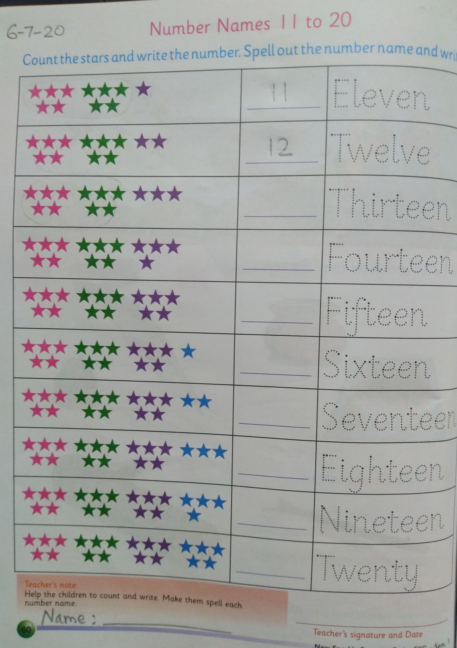 6-7-20
Number Names 11 to 20
Count the stars and write the number. Spell out the number name and wri
11 Eleven
12 Twelve
Thirteen
Fourteen
Fifteen
Sixteen
Seventeen
Eighteen
Nineteen
Twenty
Teacher's note:
Help the children to count and write. Make them spell each
number name.
Name:
Teacher's signature and Date